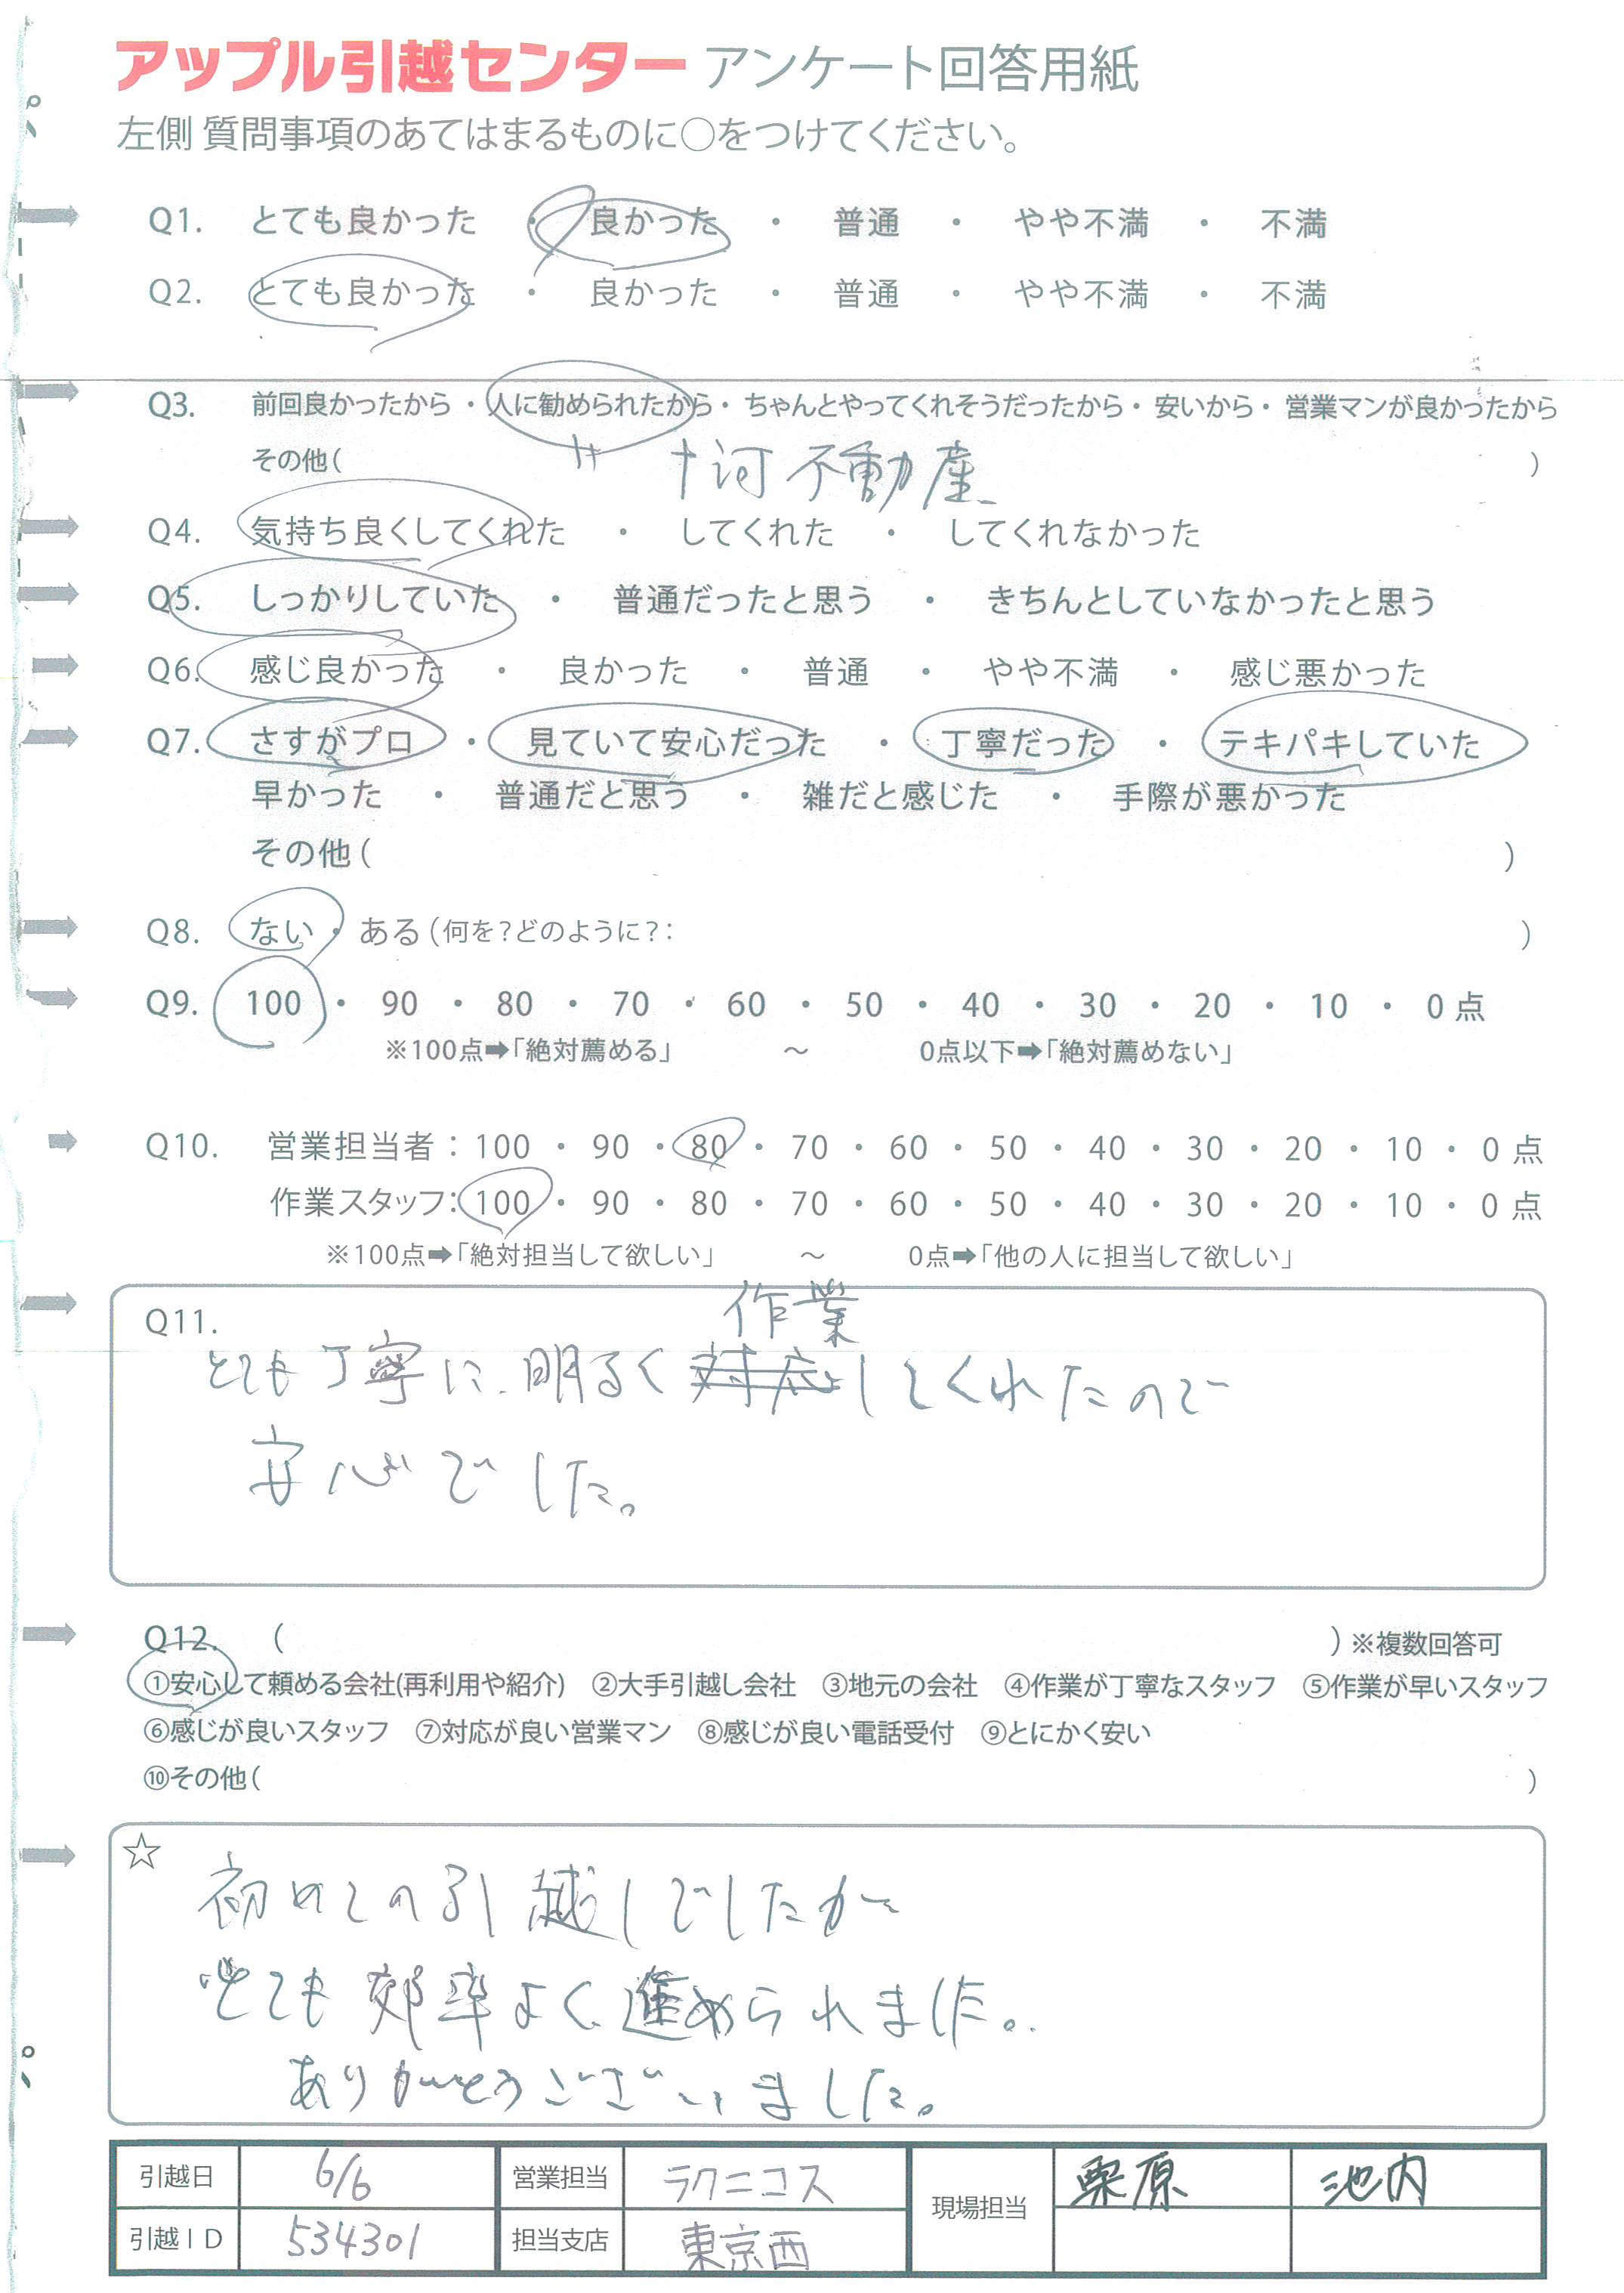 アップル引越センター アンケート回答用紙
左側 質問事項のあてはまるものに○をつけてください。
Q1. とても良かった ・ 良かった ・ 普通 ・ やや不満 ・ 不満
Q2. とても良かった ・ 良かった ・ 普通 ・ やや不満 ・ 不満
Q3. 前回良かったから ・ 人に勧められたから ・ ちゃんとやってくれそうだったから ・ 安いから ・ 営業マンが良かったから
その他( 十河不動産 )
Q4. 気持ち良くしてくれた ・ してくれた ・ してくれなかった
Q5. しっかりしていた ・ 普通だったと思う ・ きちんとしていなかったと思う
Q6. 感じ良かった ・ 良かった ・ 普通 ・ やや不満 ・ 感じ悪かった
Q7. さすがプロ ・ 見ていて安心だった ・ 丁寧だった ・ テキパキしていた
早かった ・ 普通だと思う ・ 雑だと感じた ・ 手際が悪かった
その他( )
Q8. ない ・ ある(何を?どのように?: )
Q9. 100 ・ 90 ・ 80 ・ 70 ・ 60 ・ 50 ・ 40 ・ 30 ・ 20 ・ 10 ・ 0 点
※100点➡「絶対薦める」 ～ 0点以下➡「絶対薦めない」
Q10. 営業担当者：100 ・ 90 ・ 80 ・ 70 ・ 60 ・ 50 ・ 40 ・ 30 ・ 20 ・ 10 ・ 0 点
作業スタッフ：100 ・ 90 ・ 80 ・ 70 ・ 60 ・ 50 ・ 40 ・ 30 ・ 20 ・ 10 ・ 0 点
※100点➡「絶対担当して欲しい」 ～ 0点➡「他の人に担当して欲しい」
Q11.
作業
とても丁寧に、明るく対応してくれたので
安心でした。
Q12. ( ) ※複数回答可
①安心して頼める会社(再利用や紹介) ②大手引越し会社 ③地元の会社 ④作業が丁寧なスタッフ ⑤作業が早いスタッフ
⑥感じが良いスタッフ ⑦対応が良い営業マン ⑧感じが良い電話受付 ⑨とにかく安い
⑩その他( )
☆
初めての引越しでしたが
とても効率よく進められました。
ありがとうございました。
引越日 6/6 営業担当 ラクニコス 現場担当 栗原 池内
引越ID 534301 担当支店 東京西